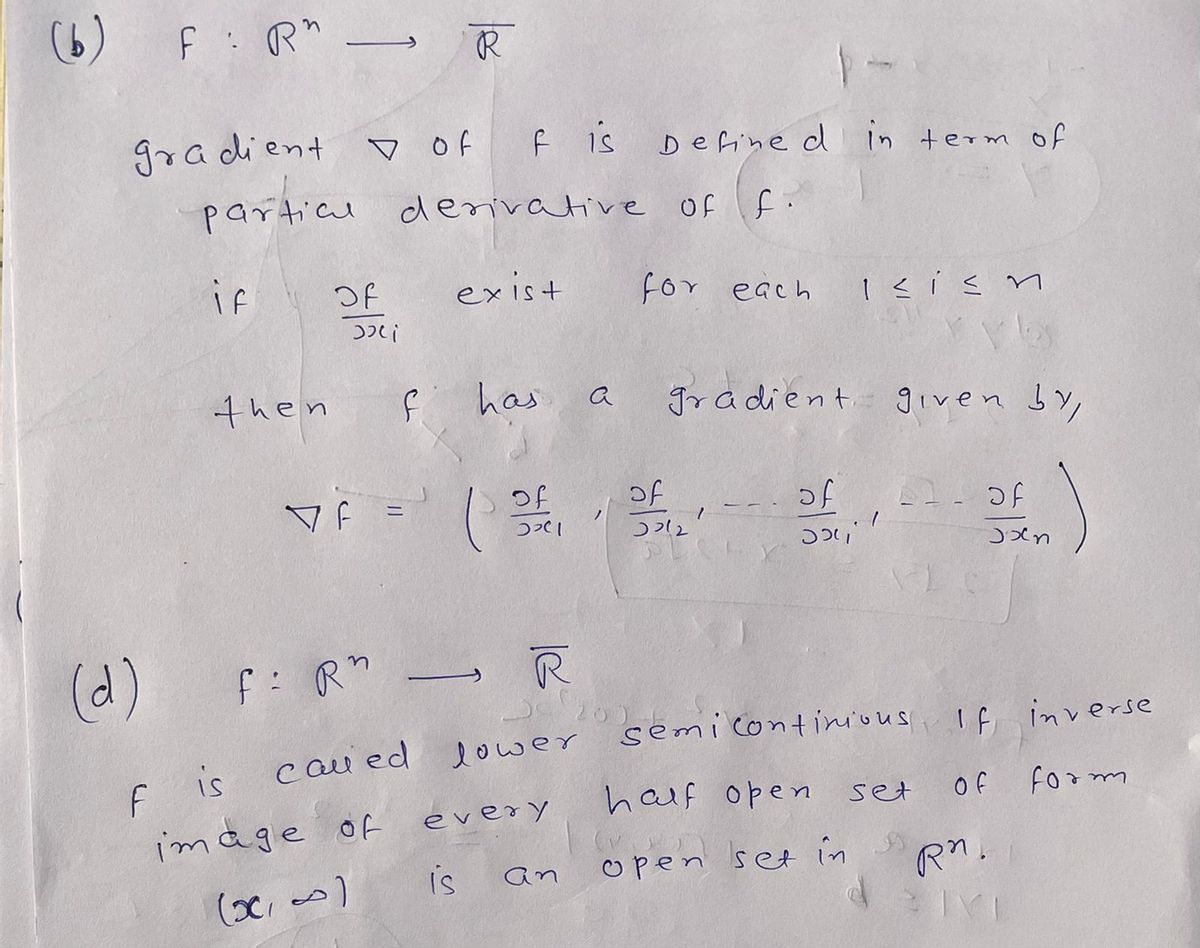 (b) f : Rⁿ ⟶ R̅
gradient ▽ of f is Defined in term of
partial derivative of f.
if ∂f/∂xi exist for each 1 ≤ i ≤ n
then f has a gradient given by,
▽f = ( ∂f/∂x1 , ∂f/∂x2 , --- ∂f/∂xi , --- ∂f/∂xn )
(d) f : Rⁿ ⟶ R̅
f is called lower semicontinious if inverse
image of every half open set of form
(x, ∞) is an open set in Rⁿ.